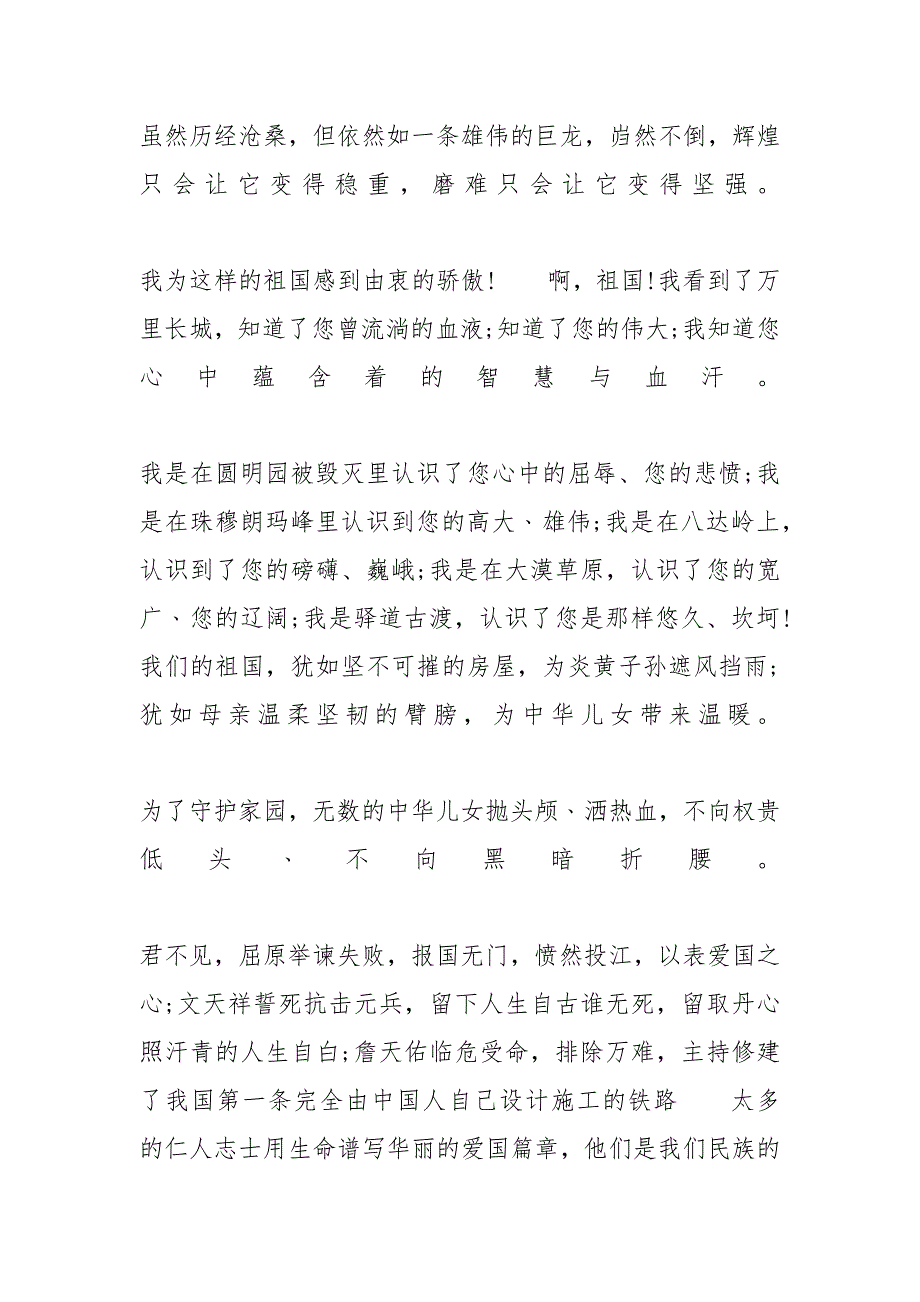 虽然历经沧桑，但依然如一条雄伟的巨龙，岿然不倒，辉煌
只会让它变得稳重，磨难只会让它变得坚强。
我为这样的祖国感到由衷的骄傲!　　啊，祖国!我看到了万
里长城，知道了您曾流淌的血液;知道了您的伟大;我知道您
心中蕴含着的智慧与血汗。
我是在圆明园被毁灭里认识了您心中的屈辱、您的悲愤;我
是在珠穆朗玛峰里认识到您的高大、雄伟;我是在八达岭上，
认识到了您的磅礴、巍峨;我是在大漠草原，认识了您的宽
广、您的辽阔;我是驿道古渡，认识了您是那样悠久、坎坷!
我们的祖国，犹如坚不可摧的房屋，为炎黄子孙遮风挡雨;
犹如母亲温柔坚韧的臂膀，为中华儿女带来温暖。
为了守护家园，无数的中华儿女抛头颅、洒热血，不向权贵
低头、不向黑暗折腰。
君不见，屈原举谏失败，报国无门，愤然投江，以表爱国之
心;文天祥誓死抗击元兵，留下人生自古谁无死，留取丹心
照汗青的人生自白;詹天佑临危受命，排除万难，主持修建
了我国第一条完全由中国人自己设计施工的铁路　　太多
的仁人志士用生命谱写华丽的爱国篇章，他们是我们民族的